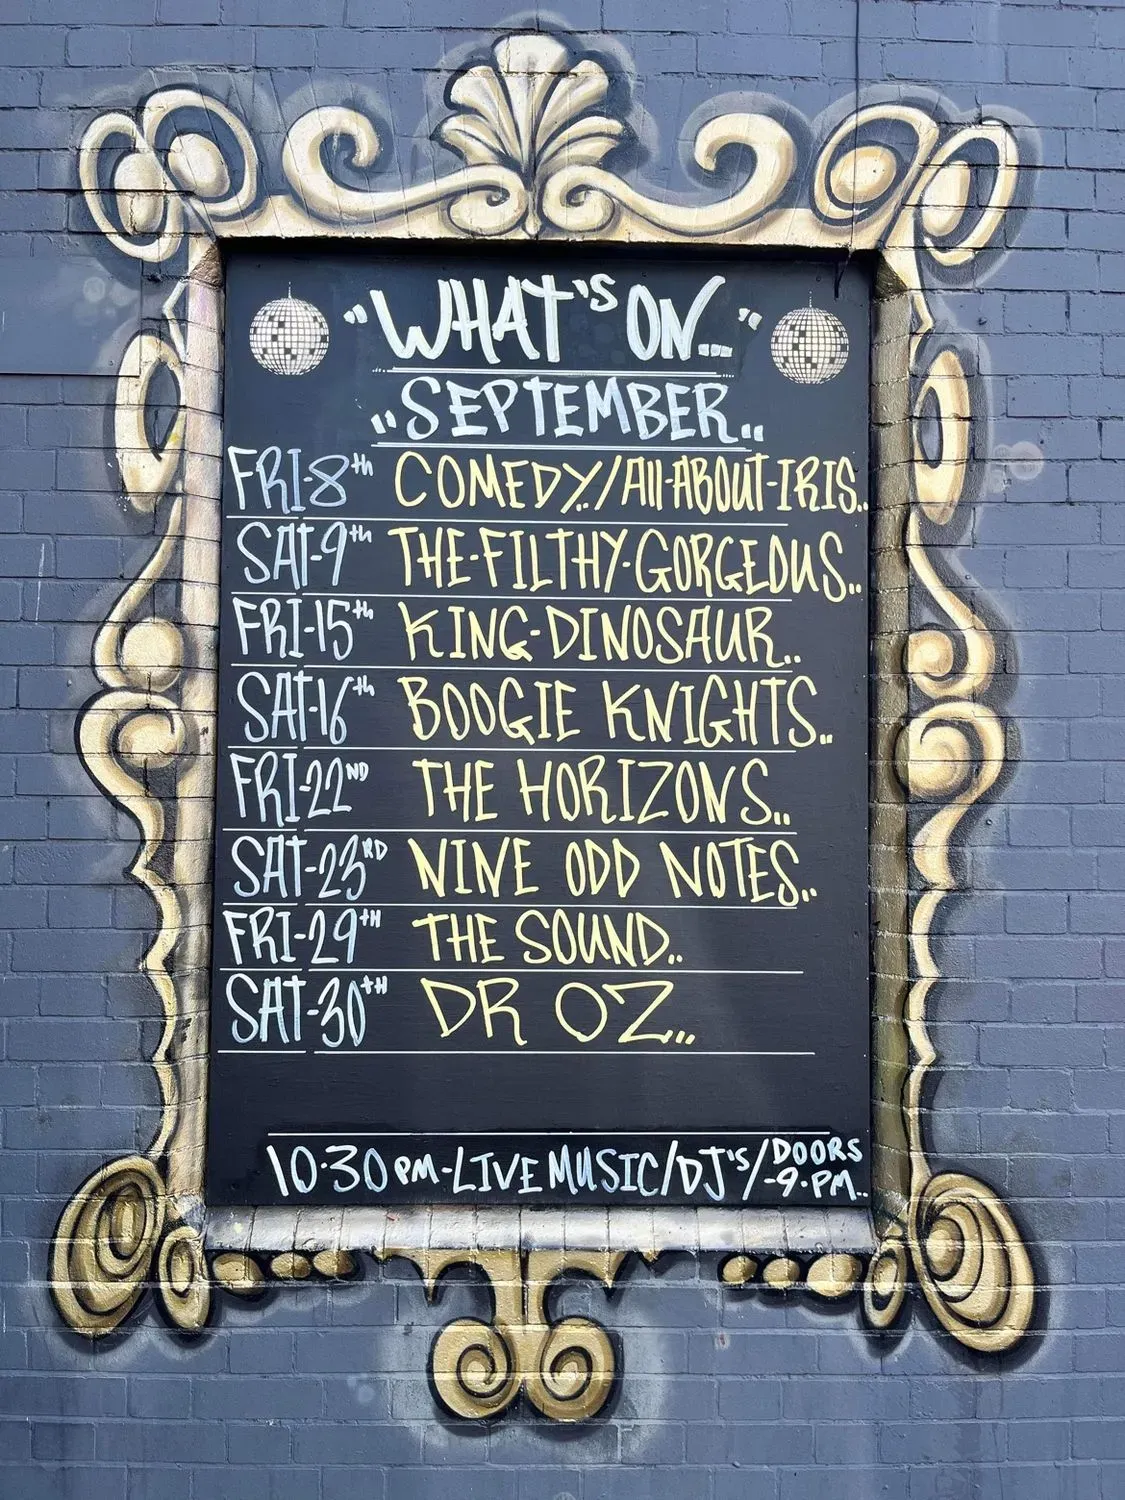 "WHAT'S ON..."
"SEPTEMBER..
FRI-8th COMEDY../All-ABOUT-IRIS..
SAT-9th THE-FILTHY-GORGEOUS..
FRI-15th KING-DINOSAUR..
SAT-16th BOOGIE KNIGHTS..
FRI-22ND THE HORIZONS..
SAT-23RD NINE ODD NOTES..
FRI-29TH THE SOUND..
SAT-30TH DR OZ...
10·30PM-LIVE MUSIC/DJ's/DOORS -9·PM..